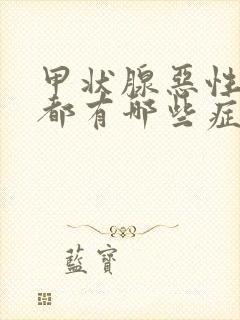 甲状腺惡性
都有哪些症
藍寶